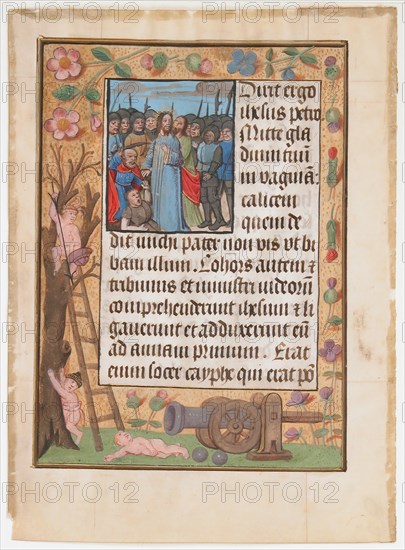 Dixit ergo
ihesus petro
Mitte gla
dium tuū
in vaginā:
calicem
quem de
dit michi pater non vis vt bi
bam illum. Cohors autem ⁊
tribunus et ministri iudeorū
comprehenderunt ihesum et li
gauerunt et adduxerunt eū
ad annam primum. Erat
enim socer cayphe qui erat pō